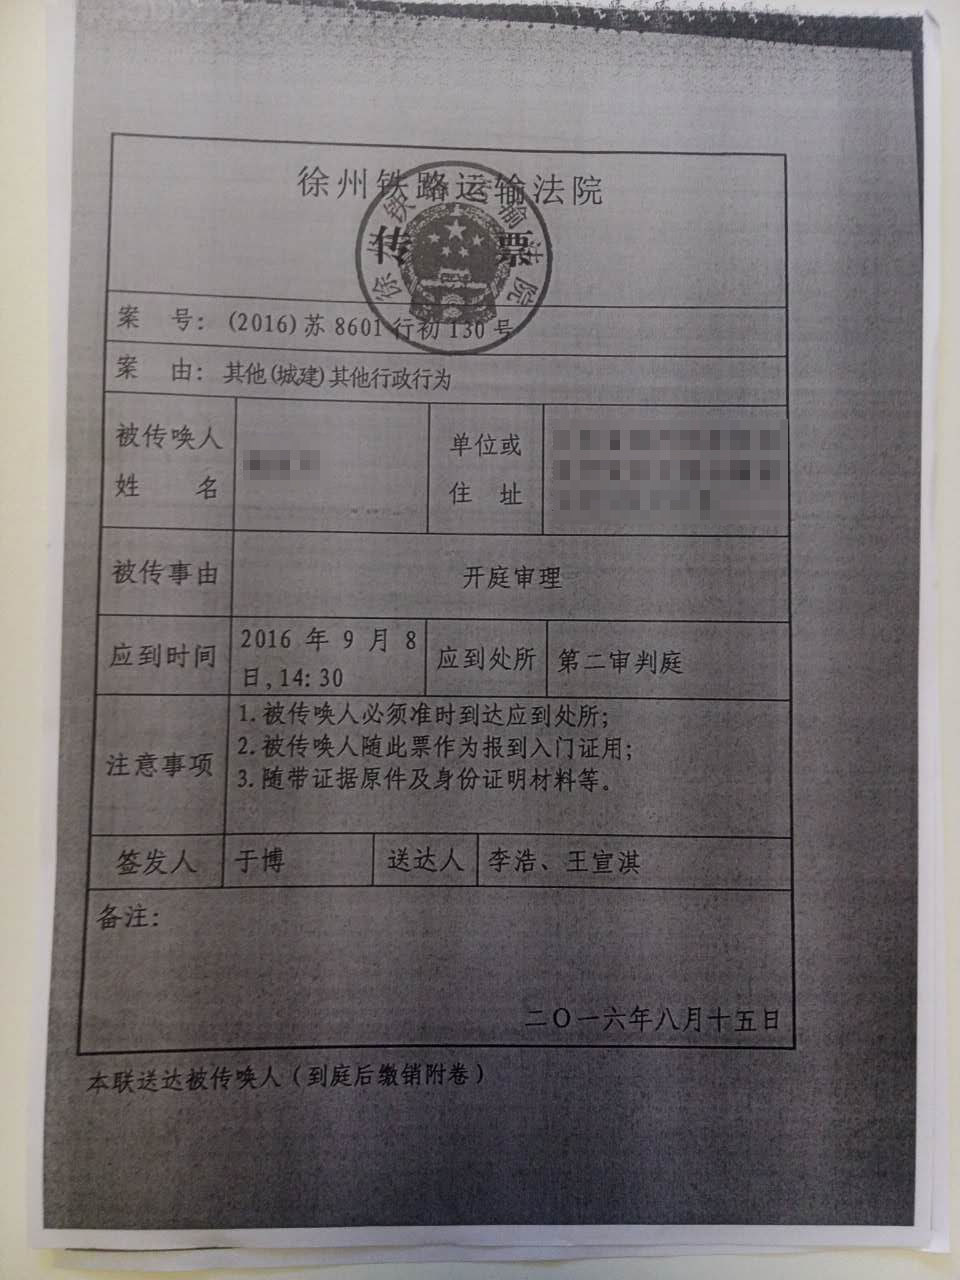 徐州铁路运输法院
传 票
徐州铁路运输法院
案 号: (2016)苏 8601 行初 130 号
案 由: 其他(城建)其他行政行为
被传唤人
姓 名
单位或
住 址
被传事由
开庭审理
应到时间
2016 年 9 月 8
日,14:30
应到处所
第二审判庭
注意事项
1.被传唤人必须准时到达应到处所;
2.被传唤人随此票作为报到入门证用;
3.随带证据原件及身份证明材料等。
签发人
于博
送达人
李浩、王宣淇
备注:
二〇一六年八月十五日
本联送达被传唤人(到庭后缴销附卷)